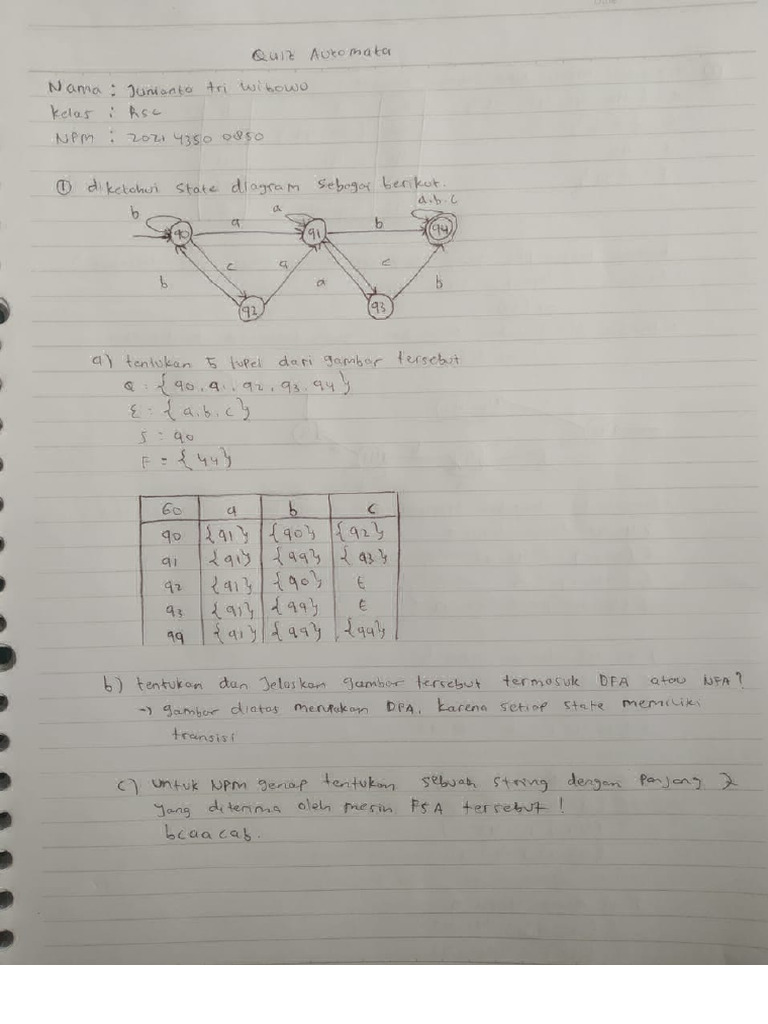 Quiz Automata
Nama : Junianto Tri Wibowo
Kelas : R5C
NPM : 2021 4350 0850
① diketahui state diagram sebagai berikut.
b a a b a.b.c
q0 q1 q4
b c a a c b
q2 q3
a) tentukan 5 tupel dari gambar tersebut
Q : {q0, q1, q2, q3, q4}
Σ : {a.b.c}
S : q0
F = {q4}
a b c
q0 {q1} {q0} {q2}
q1 {q1} {q4} {q3}
q2 {q1} {q0} ε
q3 {q1} {q4} ε
q4 {q1} {q4} {q4}
b) tentukan dan Jelaskan gambar tersebut termasuk DFA atau NFA?
→ gambar diatas merupakan DFA, karena setiap state memiliki
transisi
c) untuk NPM genap tentukan sebuah string dengan panjang 7
yang diterima oleh mesin FSA tersebut !
bcaacab.